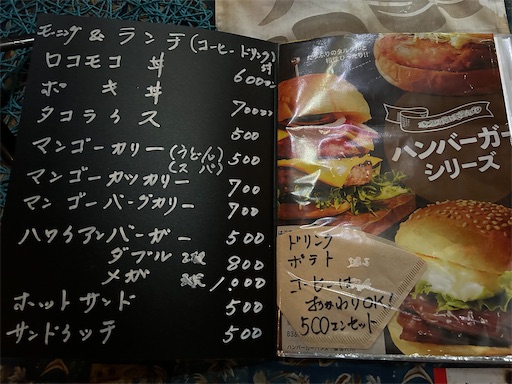 モーニング & ランチ (コーヒー ドリンク)付
ロコモコ 丼 600コン
ポキ 丼
タコライス 700コン
500
マンゴーカリー (うどん) (スパ) 500
マンゴーカツカリー 700
マンゴーバーグカリー 700
ハワイアンバーガー 500
ダブル 800
メガ 1,000
ホットサンド 500
サンドイッチ 500
ハンバーガー
シリーズ
ドリンク
ポテト
コーヒーは
おかわりOK!
500コンセット